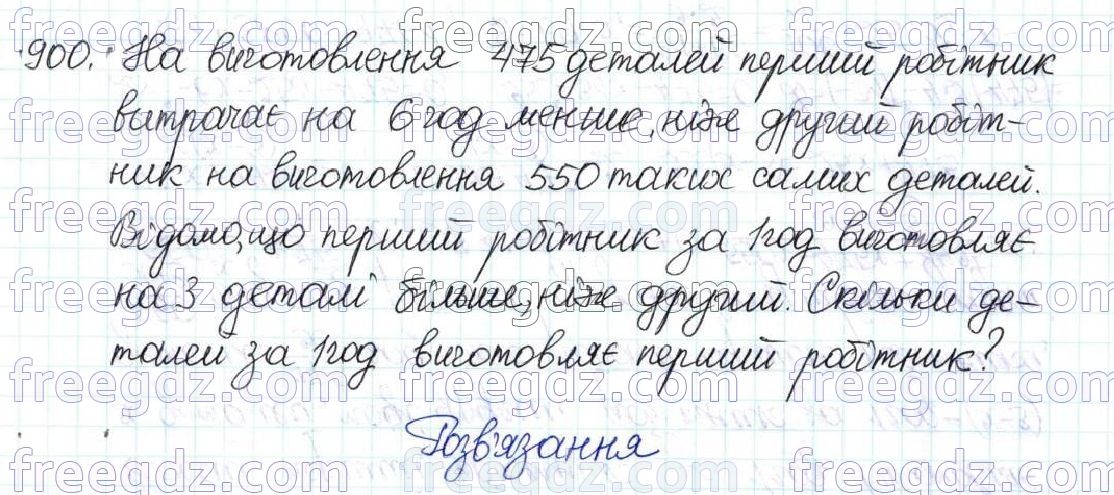 900. На виготовлення 475 деталей перший робітник
витрачає на 6 год менше, ніж другий робіт-
ник на виготовлення 550 таких самих деталей.
Відомо, що перший робітник за 1 год виготовляє
на 3 деталі більше, ніж другий. Скільки де-
талей за 1 год виготовляє перший робітник?
Розв'язання